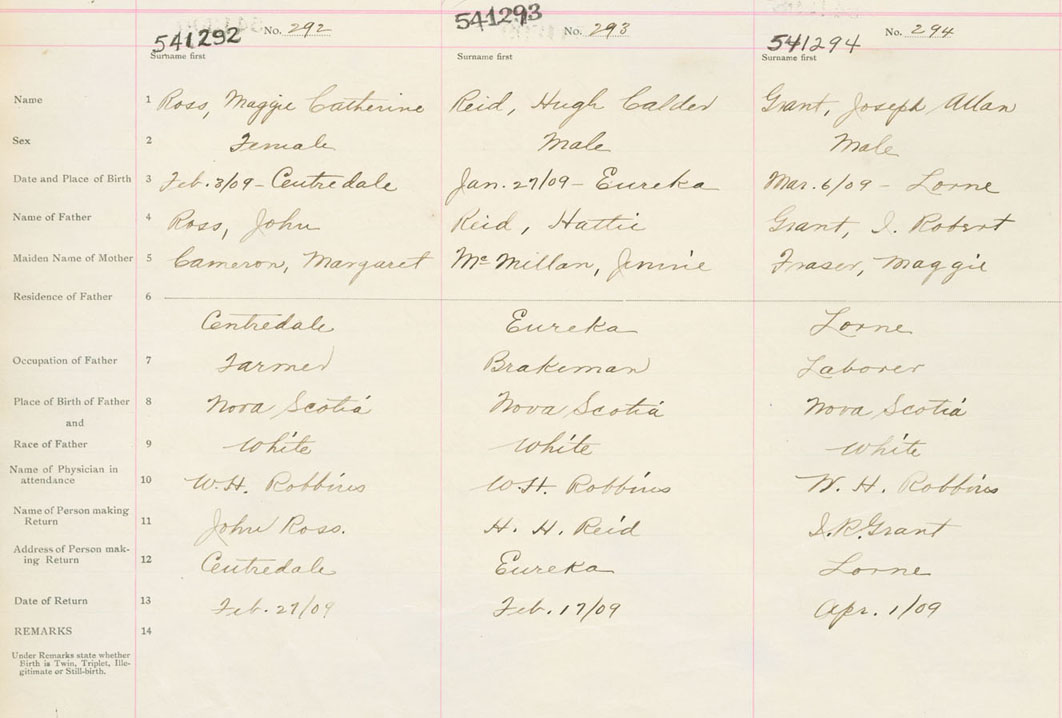 541292 No. 292 541293 No. 293 541294 No. 294
Surname first Surname first Surname first
Name 1 Ross, Maggie Catherine Reid, Hugh Calder Grant, Joseph Allan
Sex 2 Female Male Male
Date and Place of Birth 3 Feb. 3/09 - Centredale Jan. 27/09 - Eureka Mar. 6/09 - Lorne
Name of Father 4 Ross, John Reid, Hattie Grant, I. Robert
Maiden Name of Mother 5 Cameron, Margaret McMillan, Jinnie Fraser, Maggie
Residence of Father 6
Centredale Eureka Lorne
Occupation of Father 7 Farmer Brakeman Laborer
Place of Birth of Father 8 Nova Scotia Nova Scotia Nova Scotia
and
Race of Father 9 White White White
Name of Physician in
attendance 10 W. H. Robbins W. H. Robbins W. H. Robbins
Name of Person making
Return 11 John Ross. H. H. Reid I. R. Grant
Address of Person mak-
ing Return 12 Centredale Eureka Lorne
Date of Return 13 Feb. 27/09 Feb. 17/09 Apr. 1/09
REMARKS 14
Under Remarks state whether
Birth is Twin, Triplet, Ille-
gitimate or Still-birth.